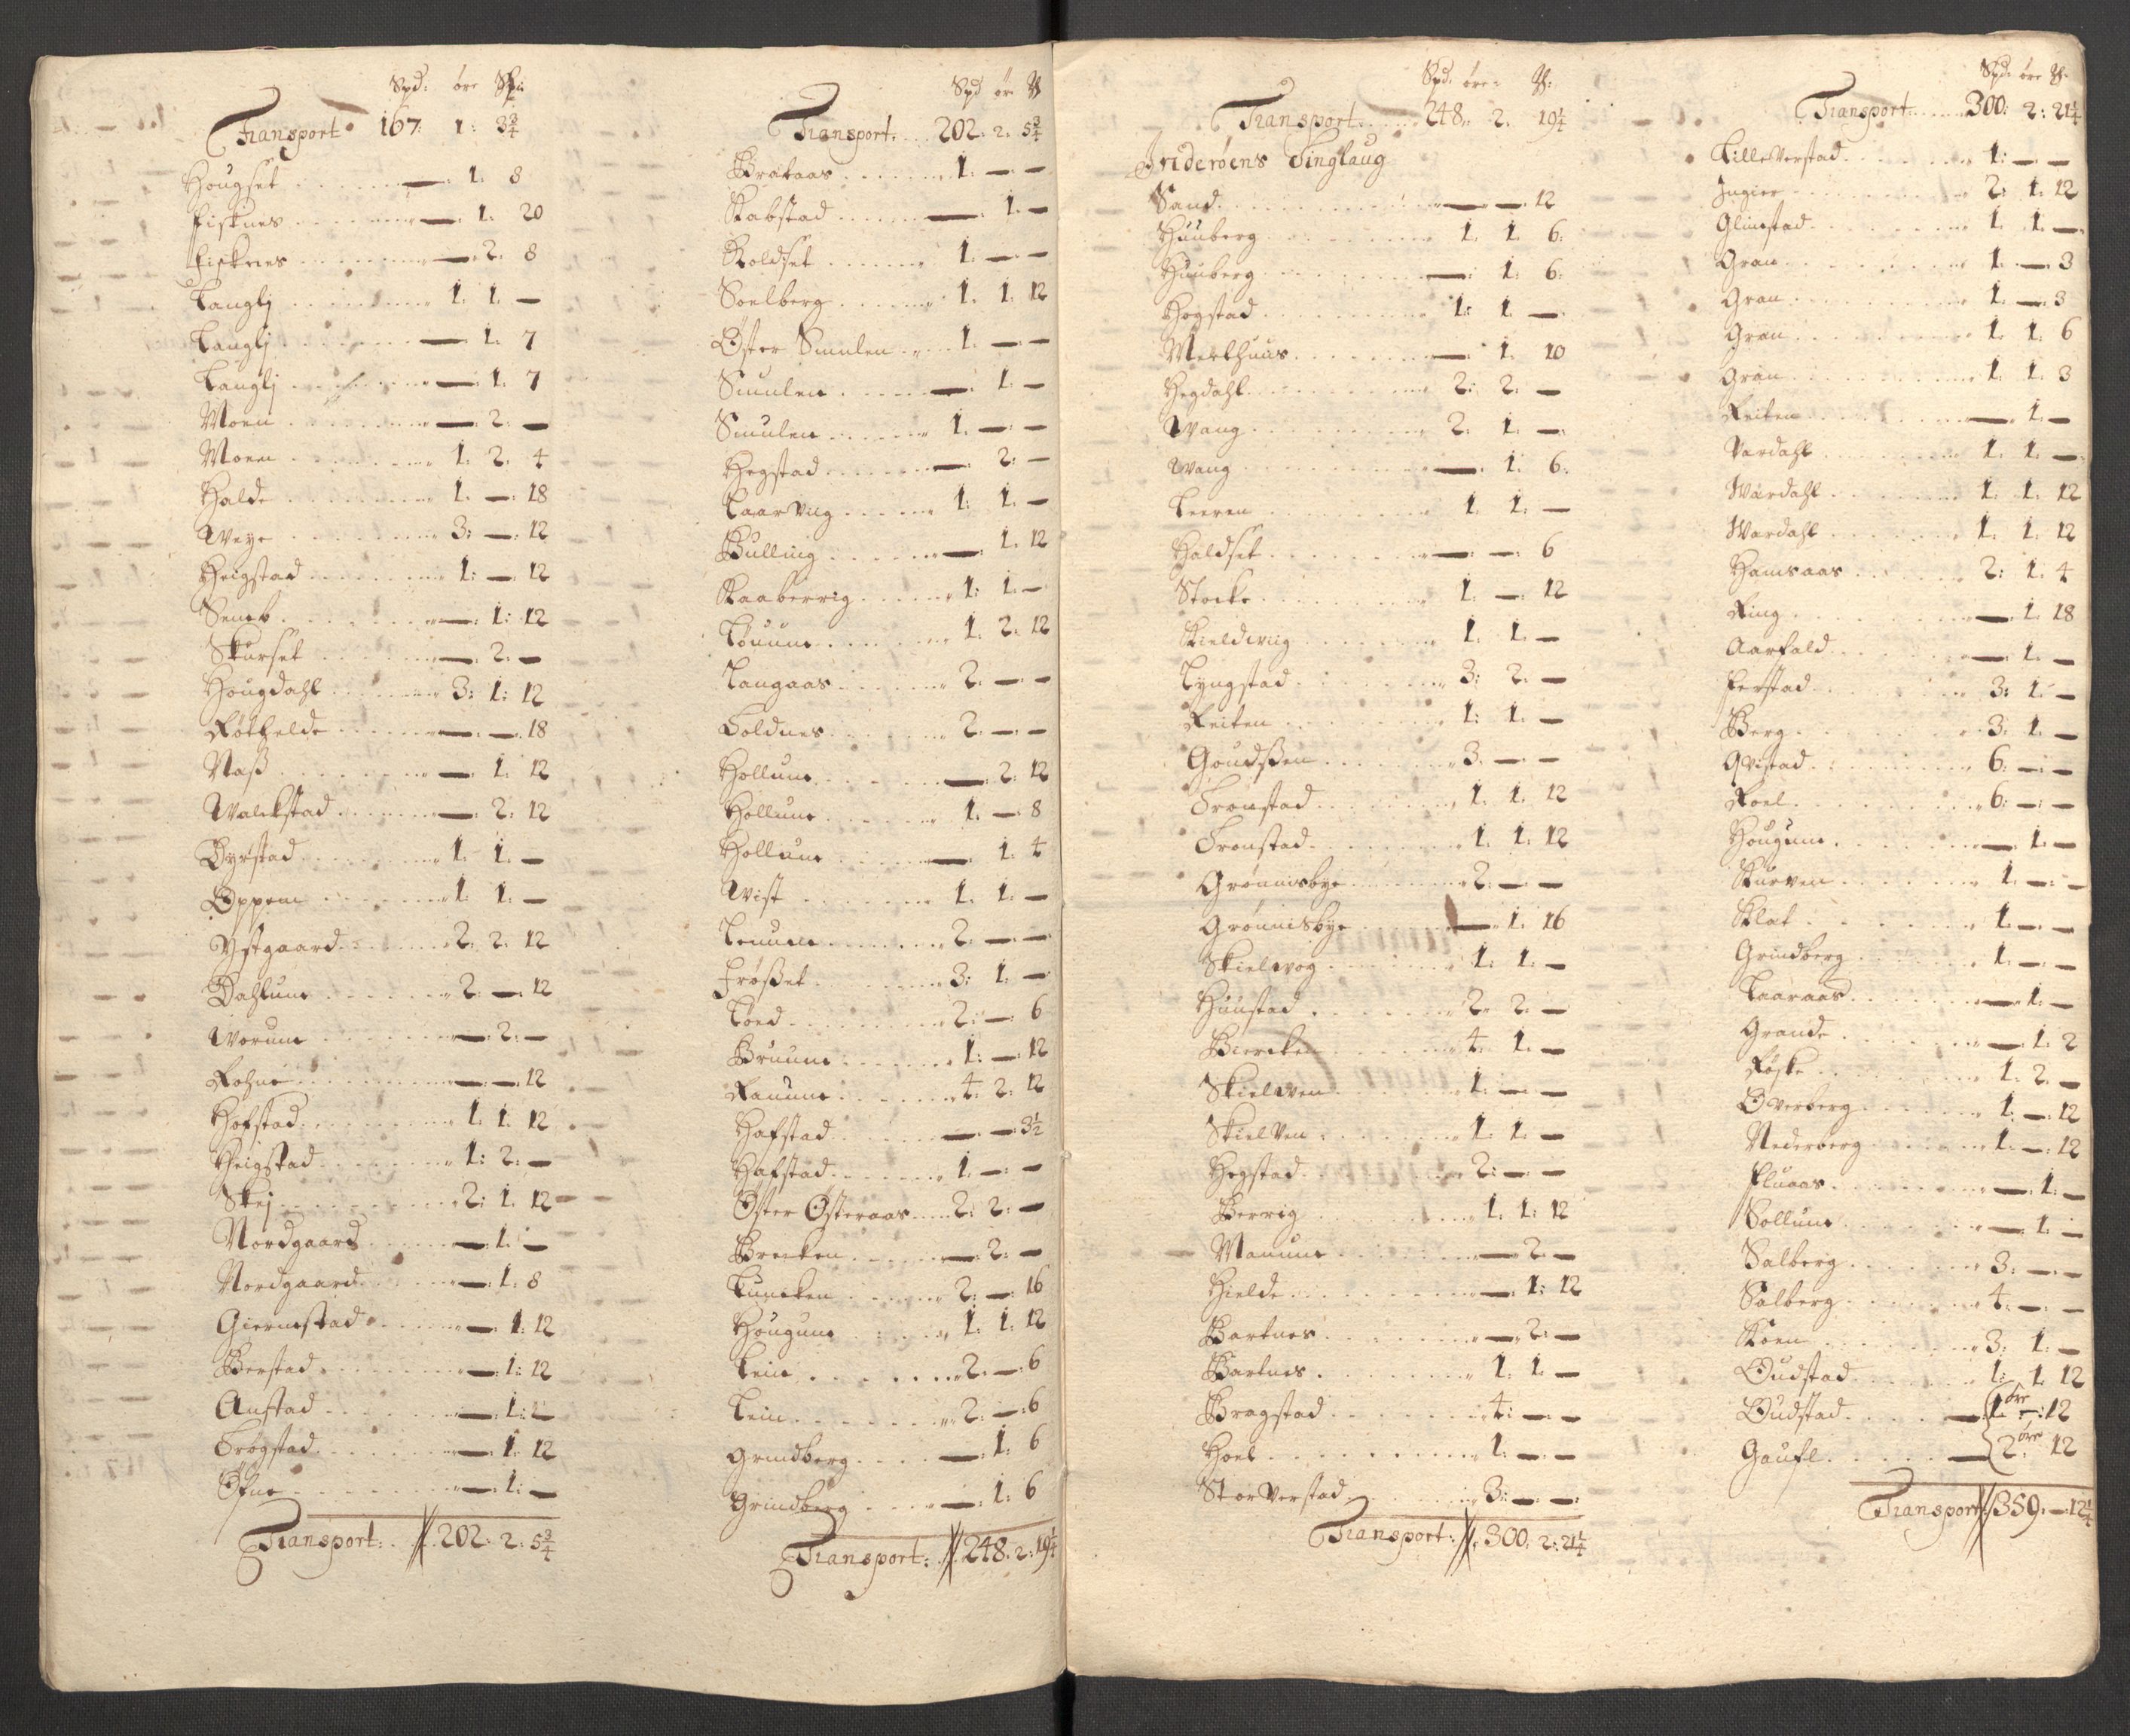 Spd: öre
Transport 167: 1: 3¾
Hougset — 1: 8
Fisknes — 1: 20
Fisknes — 2: 8
Langlj 1: 1: —
Langlj — 1: 7
Langlj — 1: 7
Moen — 2: —
Moen 1: 2: 4
Halde 1: — 18
Weye 3: — 12
Heigstad 1: — 12
— 1: 12
Skurset — 2: —
Hougdahl 3: 1: 12
— — 18
Naß — 1: 12
Walekstad — 2: 12
Dyrstad 1: 1: —
Oppem 1: 1: —
Ystgaard 2: 2: 12
Dahlum 2: — 12
Worum — 2: —
— — 12
Hofstad 1: 1: 12
Heigstad 1: 2: —
Skej 2: 1: 12
Nordgaard — 1: —
Nordgaard — 1: 8
Giermstad — 1: 12
Berstad — 1: 12
Anstad — 1:
Trøgstad — 1: 12
— 1: —
Transport: 202: 2: 5¾
Spd ör
Transport 202: 2: 5¾
Brataas 1: — —
Kabstad — 1: —
Koldset 1: — —
Soelberg 1: 1: 12
Öster Smulen 1: — —
Smulen — 1: —
Smulen 1: — —
Hegstad — 2: —
1: 1: —
Bulling — 1: 12
Kaaberrig 1: 1: —
1: 2: 12
Langaas 2: — —
Foldnes 2: — —
Hollum — 2: 12
Hollum 1: — 8
Hollum — 1: 4
Wist 1: 1: —
2: — —
Frøßet 3: 1: —
2: — 6
Bruum 1: — 12
Rauum 4: 2: 12
Hafstad — — 3½
Hafstad 1: — —
Öster Østeraas 2: 2: —
Brecken — 2: —
Luncken 2: — 16
Hougum 1: 1: 12
Lein 2: — 6
Lein 2: — 6
Grindberg — 1: 6
Grindberg — 1: 6
Transport: 248: 2: 19¼
Spd: öre
Transport 248: 2: 19¼
Inderöens Tinglaug
Sand — — 12
Huuberg 1: 1: 6:
Huuberg — 1: 6:
Hogstad 1: 1: —
Merthuus — 1: 10
Hegdahl 2: 2: —
Wang 2: 1: —
Wang — 1: 6:
Leeren 1: 1: —
Haldset — — 6
Stocke 1: — 12
Kieldwiig 1: 1: —
Lyngstad 3: 2: —
Reiten 1: 1: —
Goudßen 3: — —
Tronstad 1: 1: 12
Tronstad 1: 1: 12
Grönnisbye 2: — —
Grönnisbye — 1: 16
Skielwog 1: 1: —
Huustad 2: 2: —
Biercken 4: 1: —
Skielwen 1: — —
Skielven 1: 1: —
Hegstad 2: — —
Berrig 1: 1: 12
Manum — 2: —
Hielde — 1: 12
Bartnes — 2: —
Bartnes 1: 1: —
Bragstad 4: — —
Hoel 1: — —
StorVerstad 3: — —
Transport: 300: 2: 21¼
Spd: öre
Transport 300: 2: 21¼
LilleVerstad 1: — —
Ingier 2: 1: 12
Glimstad 1: 1: —
Gran 1: — 3
Gran 1: — 3
Gran 1: 1: 6
Gran 1: 1: 3
Reiten — 1: —
Vardahl 1: 1: —
Wardahl 1: 1: 12
Wardahl 1: 1: 12
Hamsaas 2: 1: 4
Ring — 1: 18
Aarfald — 1: —
Ferstad 3: 1: —
Berg 3: 1: —
Qvistad 6: — —
Roel 6: — —
Hougum — 1: —
Kurven 1: — —
Klat 1: — —
Grindberg 1: — —
Kaaraas — 1: —
Grande — 1: 2
Røske 1: 2: —
Overberg 1: — 12
Nederberg 1: — 12
Fluaas — 1: —
Sollum — 1: —
Salberg 3: — —
Salberg 4: — —
Koen 3: 1: —
Oudstad 1: 1: 12
Oudstad — 1 öre —: 12
Gaufl — 2 öre 12
Transport: 359: — 12¼